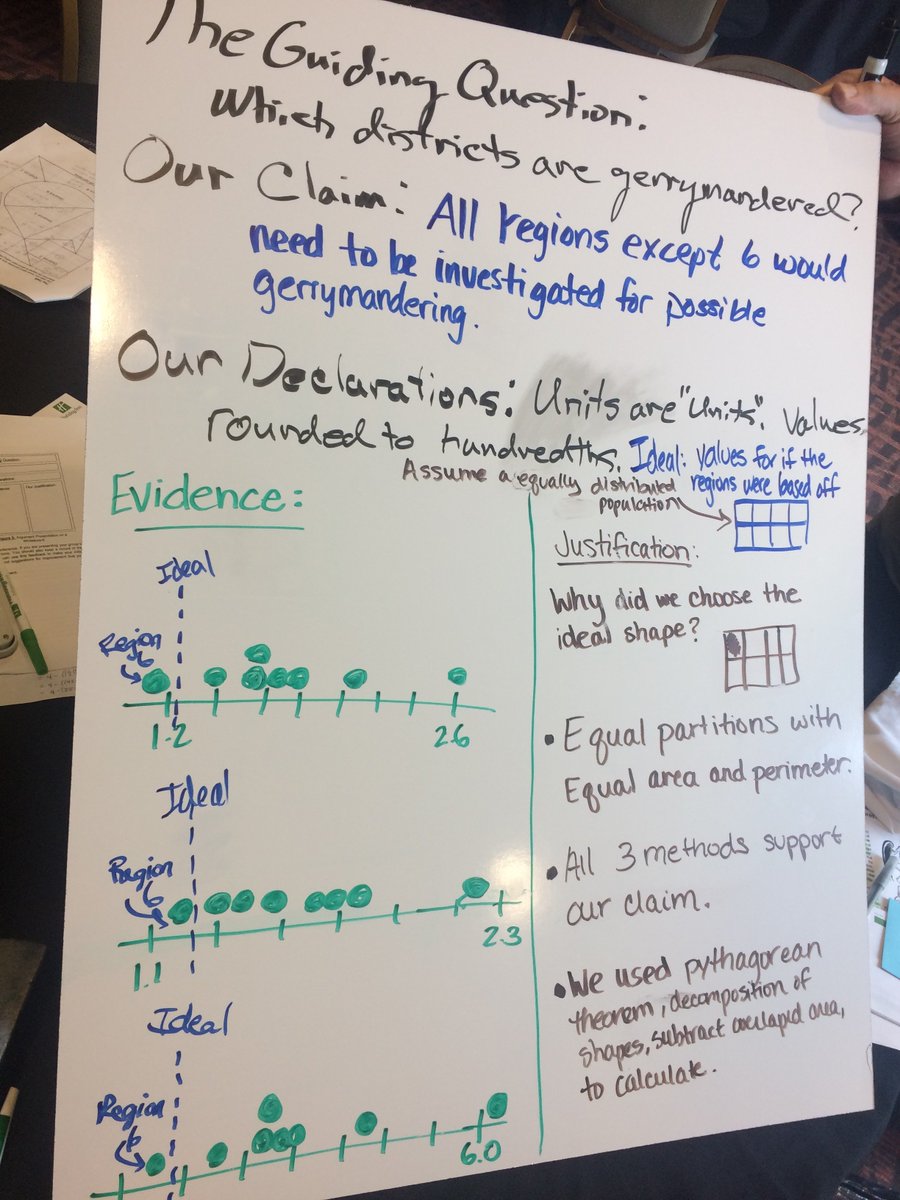 The Guiding Question:
Which districts are gerrymandered?
Our Claim: All regions except 6 would
need to be investigated for possible
gerrymandering.
Our Declarations: Units are "Units". Values
rounded to hundredths. Ideal: Values for if the
regions were based off
Assume a equally distributed
population
Evidence:
Ideal
Region
6
1.2
2.6
Ideal
Region
6
1.1
2.3
Ideal
Region
6
6.0
Justification:
Why did we choose the
ideal shape?
• Equal partitions with
Equal area and perimeter.
• All 3 methods support
our claim.
• We used pythagorean
theorem, decomposition of
shapes, subtract overlapid area,
to calculate.